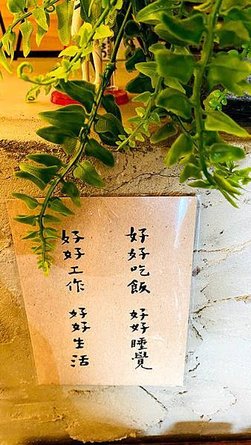 好好吃飯 好好睡覺
好好工作 好好生活